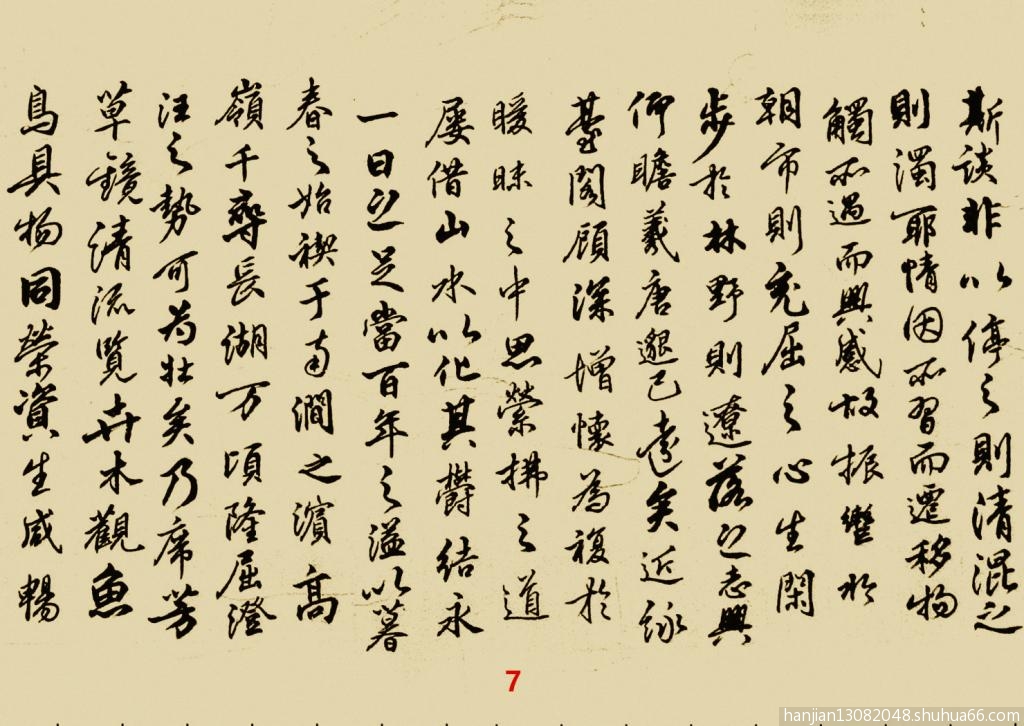 斯谈非以停之則清混之
則濁耶情因所習而遷移物
觸所遇而興感故振轡於
朝市則充屈之心生閑
步於林野則遼落之志興
仰瞻羲唐邈已遠矣近詠
䑓閣顧深增懷為複於
暖昧之中思縈拂之道
屡借山水以化其欝結永
一日之足當百年之溢以暮
春之始禊于南澗之濱高
嶺千尋長湖万頃隆屈澄
汪之勢可为壮矣乃席芳
草鏡清流覽卉木觀魚
鳥具物同榮資生咸暢
7
hanjian13082048.shuhua66.com